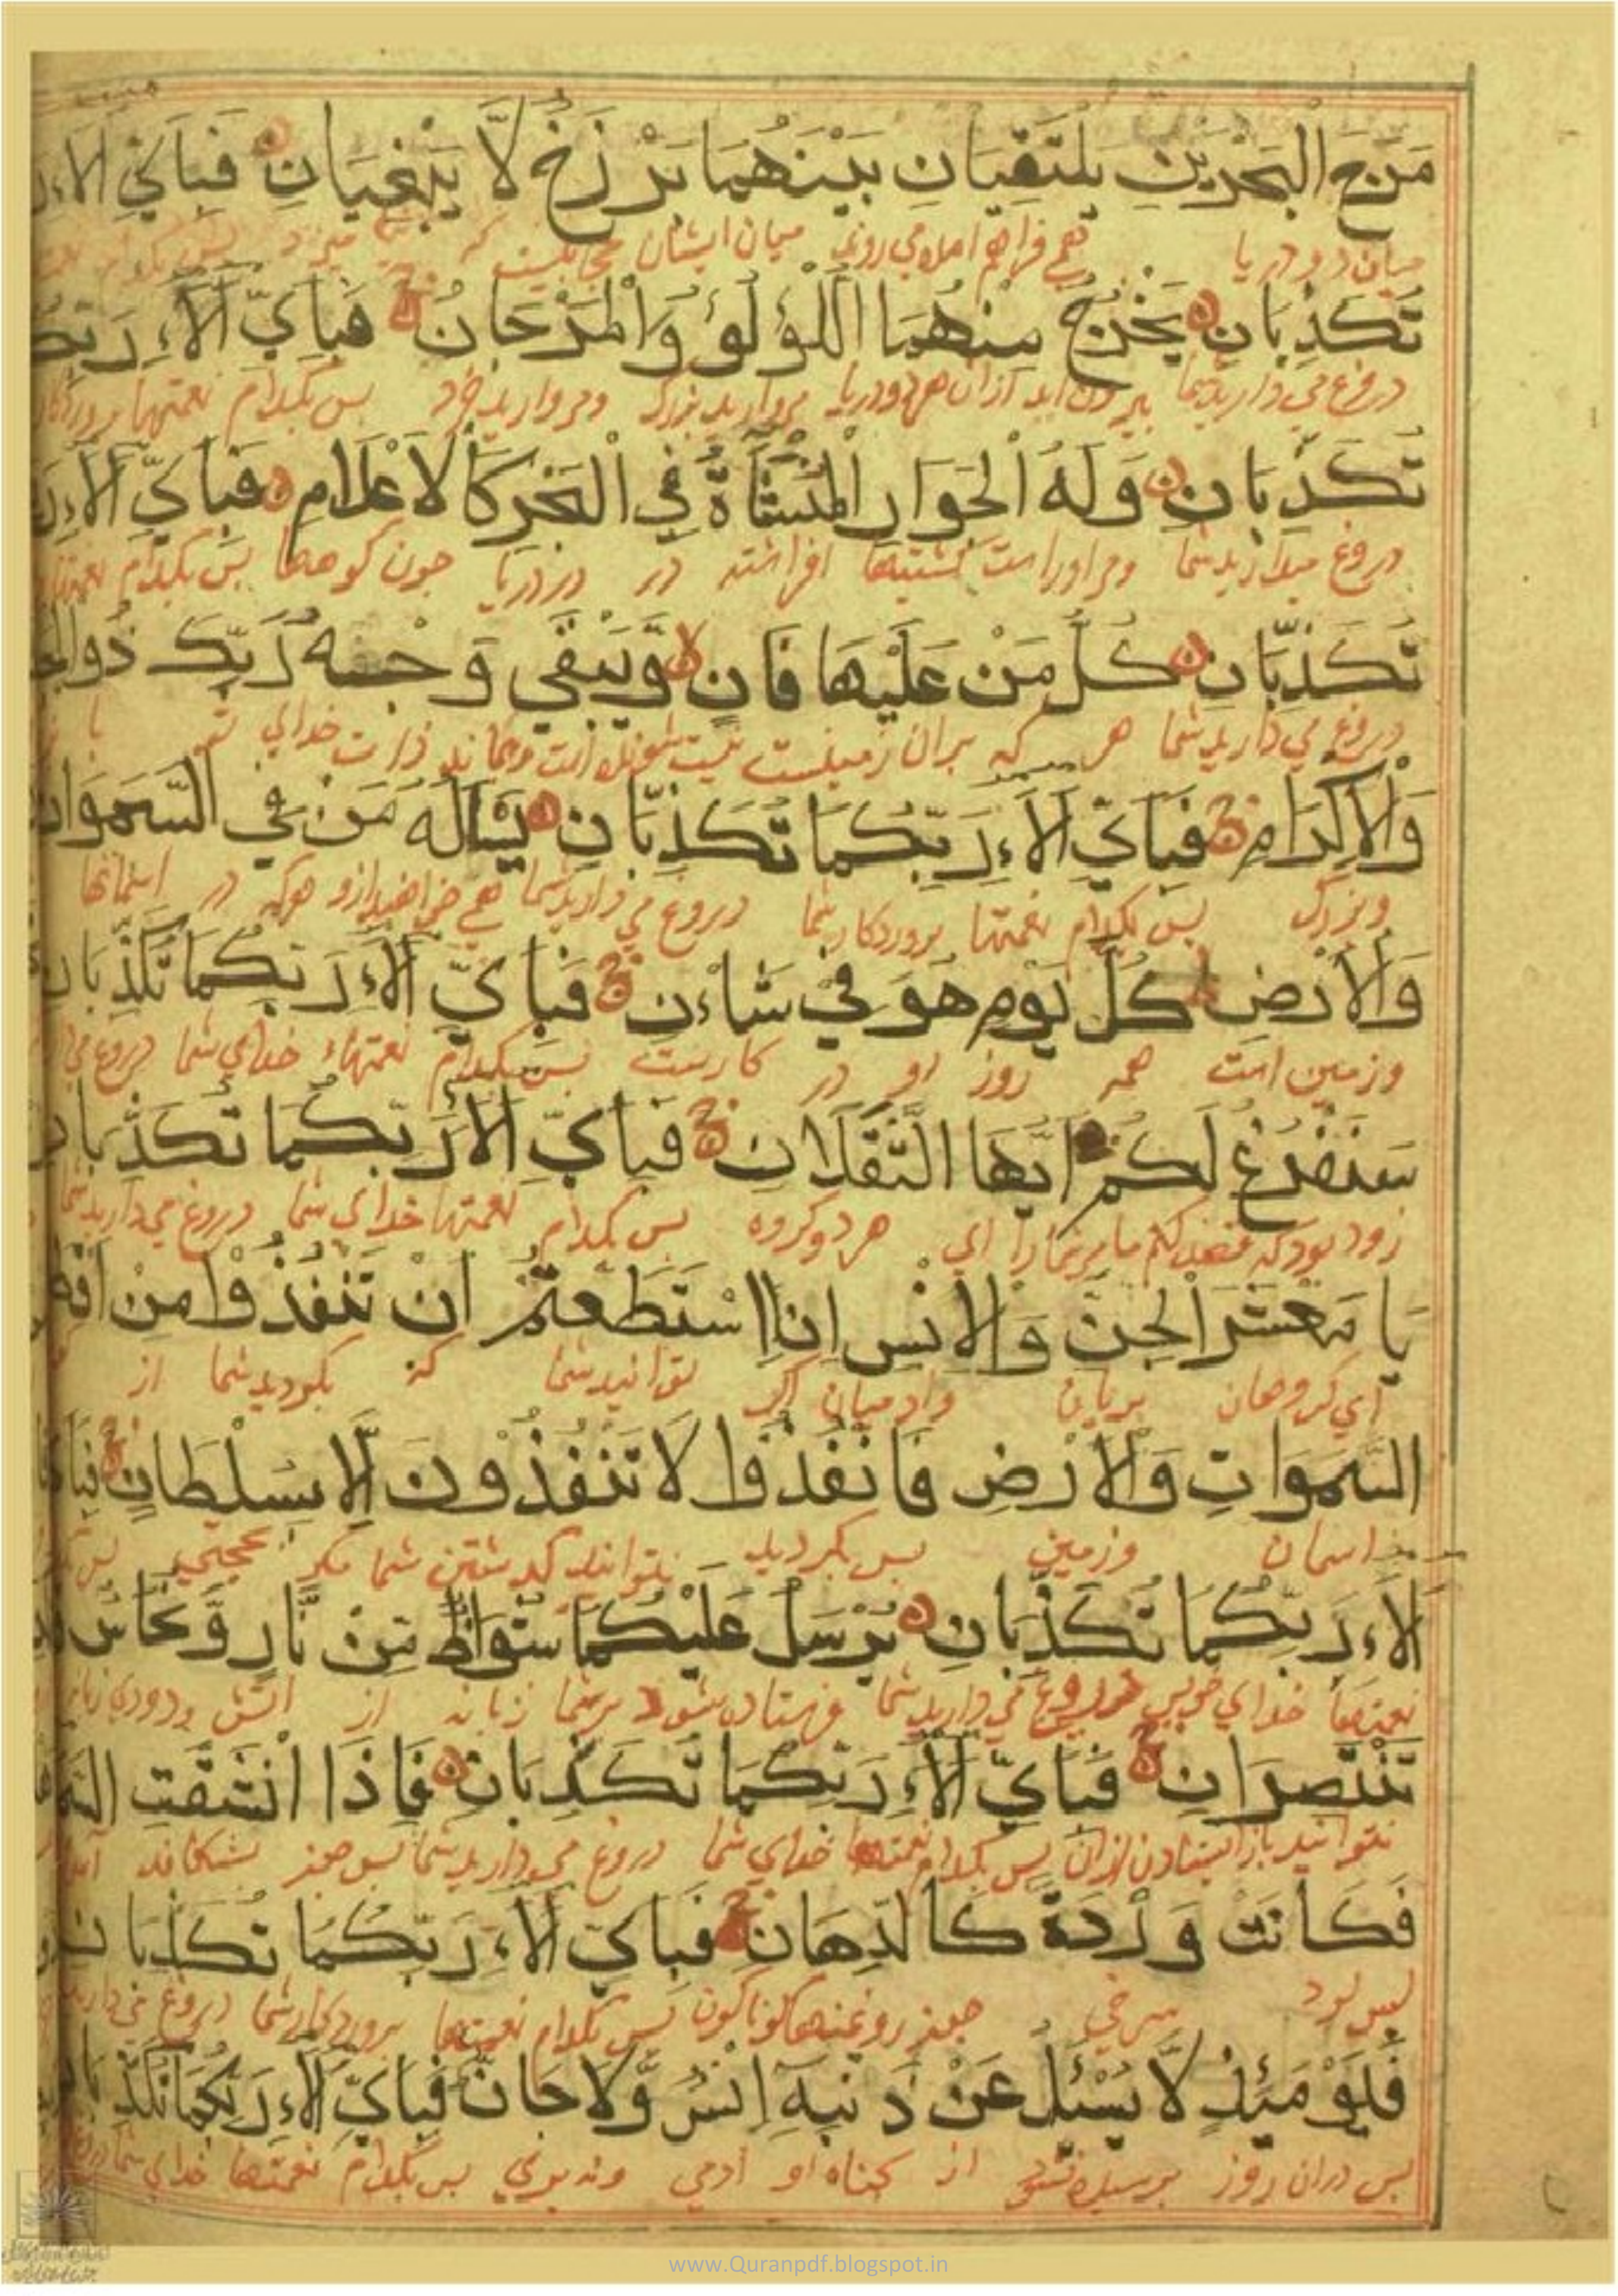 مَرَجَ الْبَحْرَيْنِ يَلْتَقِيَانِ بَيْنَهُمَا بَرْزَخٌ لَّا يَبْغِيَانِ فَبِاَيِّ اٰلَاۤءِ
میان دو دریا بهم فراهم می روند میان ایشان که
تُكَذِّبَانِ يَخْرُجُ مِنْهُمَا اللُّؤْلُؤُ وَالْمَرْجَانُ فَبِاَيِّ اٰلَاۤءِ رَبِّكُ
دروغ می دارید شما بیرون اید ازان هردو دریا مروارید بزرک ومروارید خرد بس بکدام نعمتها
تُكَذِّبَانِ وَلَهُ الْجَوَارِ الْمُنْشَاٰةُ فِي الْبَحْرِ كَالْاَعْلَامِ فَبِاَيِّ اٰلَاۤءِ
دروغ میدارید شما ومراوراست کشتیها افراشته در دریا جون کوهها بس بکدام
تُكَذِّبَانِ كُلُّ مَنْ عَلَيْهَا فَانٍ وَّيَبْقٰي وَجْهُ رَبِّكَ ذُوالْجَ
دروغ می دارید شما هر که بران زمینست نیست ذات خدای تو با
وَالْاِكْرَامِ فَبِاَيِّ اٰلَاۤءِ رَبِّكُمَا تُكَذِّبَانِ يَسْاَلُهُ مَنْ فِي السَّمٰوَاتِ
وبزرک بس بکدام نعمتها بروردکار شما دروغ می دارید شما هرکه در اسمانها
وَالْاَرْضِ كُلَّ يَوْمٍ هُوَ فِيْ شَاءْنٍ فَبِاَيِّ اٰلَاۤءِ رَبِّكُمَا تُكَذِّبَانِ
وزمین است همه روز او در کارست بس بکدام نعمتهاء خدای شما دروغ می
سَنَفْرُغُ لَكُمْ اَيُّهَا الثَّقَلَانِ فَبِاَيِّ اٰلَاۤءِ رَبِّكُمَا تُكَذِّبَانِ
زود بود که ای هر دو کروه بس بکدام نعمتها خدای شما دروغ می دارید شما
يَا مَعْشَرَ الْجِنِّ وَالْاِنْسِ اِنِ اسْتَطَعْتُمْ اَنْ تَنْفُذُوْا مِنْ اَقْطَ
ای کروهان بریان وادمیان اکر توانید شما که از
السَّمٰوَاتِ وَالْاَرْضِ فَانْفُذُوْا لَا تَنْفُذُوْنَ اِلَّا بِسُلْطَانٍ فَبِاَيِّ
اسمان وزمین بس نتوانید کدشتن شما مکر بحجتی
اٰلَاۤءِ رَبِّكُمَا تُكَذِّبَانِ يُرْسَلُ عَلَيْكُمَا شُوَاظٌ مِّنْ نَّارٍ وَّنُحَاسٌ فَلَا
نعمتها خدای دروغ می دارید شما فرستاده شود برشما زبانه از اتش ودودی
تَنْتَصِرَانِ فَبِاَيِّ اٰلَاۤءِ رَبِّكُمَا تُكَذِّبَانِ فَاِذَا انْشَقَّتِ السَّمَا
نتوانید باز ایستادن ازان بس بکدام نعمتها خدای شما دروغ می دارید شما بس جون بشکافد
فَكَانَتْ وَرْدَةً كَالدِّهَانِ فَبِاَيِّ اٰلَاۤءِ رَبِّكُمَا تُكَذِّبَانِ
بس بود سرخی جون روغنها کوناکون بس بکدام نعمتها بروردکار شما دروغ می دارید
فَيَوْمَئِذٍ لَّا يُسْئَلُ عَنْ ذَنْبِهٖ اِنْسٌ وَّلَا جَانٌّ فَبِاَيِّ اٰلَاۤءِ رَبِّكُمَا تُكَذِّبَانِ
بس دران روز برسیده نشود از کناه او ادمی ونه بری بس بکدام نعمتها خدای شما
www.Quranpdf.blogspot.in